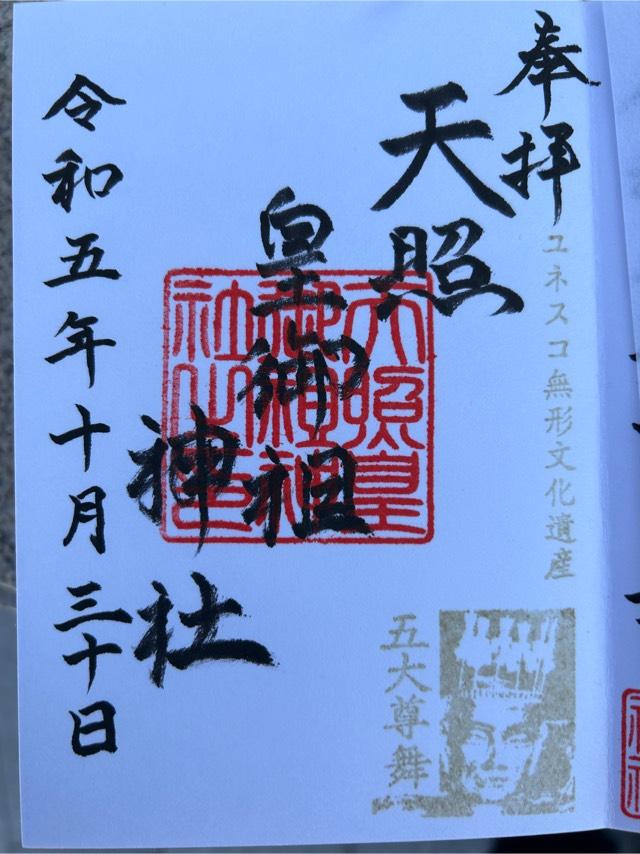 奉拝
ユネスコ無形文化遺産
天照
皇御祖
神社
天照皇
御祖神
社之印
五大尊舞
令和五年十月三十日